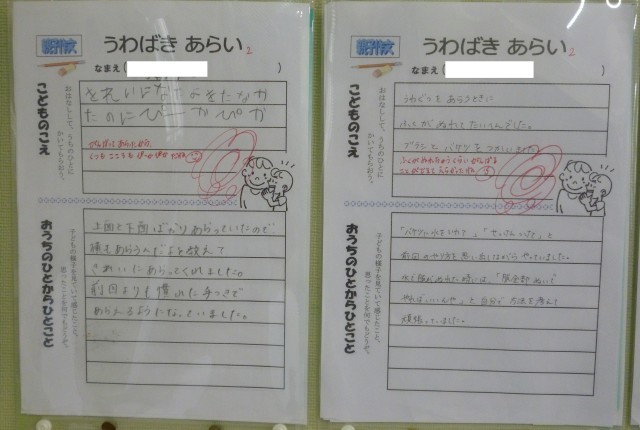 うわばき あらい2
なまえ(
)
こどものこえ
おはなしして、うちのひとに
かいてもらおう。
きれいに
ぴかぴか
がんばってあらったから、
くつもこころもぴっかぴかだね
おうちのひとからひとこと
子どもの様子を見ていて感じたこと、
思ったことを何でもどうぞ。
上面と下面ばかりあらっていたので
横もあらうんだよと教えて
きれいにあらってくれました。
前回よりも慣れた手つきで
あらえるようになっていました。
うわばき あらい2
なまえ(
)
こどものこえ
おはなしして、うちのひとに
かいてもらおう。
うわぐつをあらうときに
ふくがぬれてたいへんでした。
ブラシとバケツをつかいました。
ふくがぬれちゃうくらいがんばる
ことができてえらかったね
おうちのひとからひとこと
子どもの様子を見ていて感じたこと、
思ったことを何でもどうぞ。
「バケツに水をいれて」、「せっけんつけて」と
前回のやり方を思い出しながらやっていました。
水で服がぬれた時には、「服全部ぬいで
やればいいんや」と自分で方法を考えて
頑張っていました。